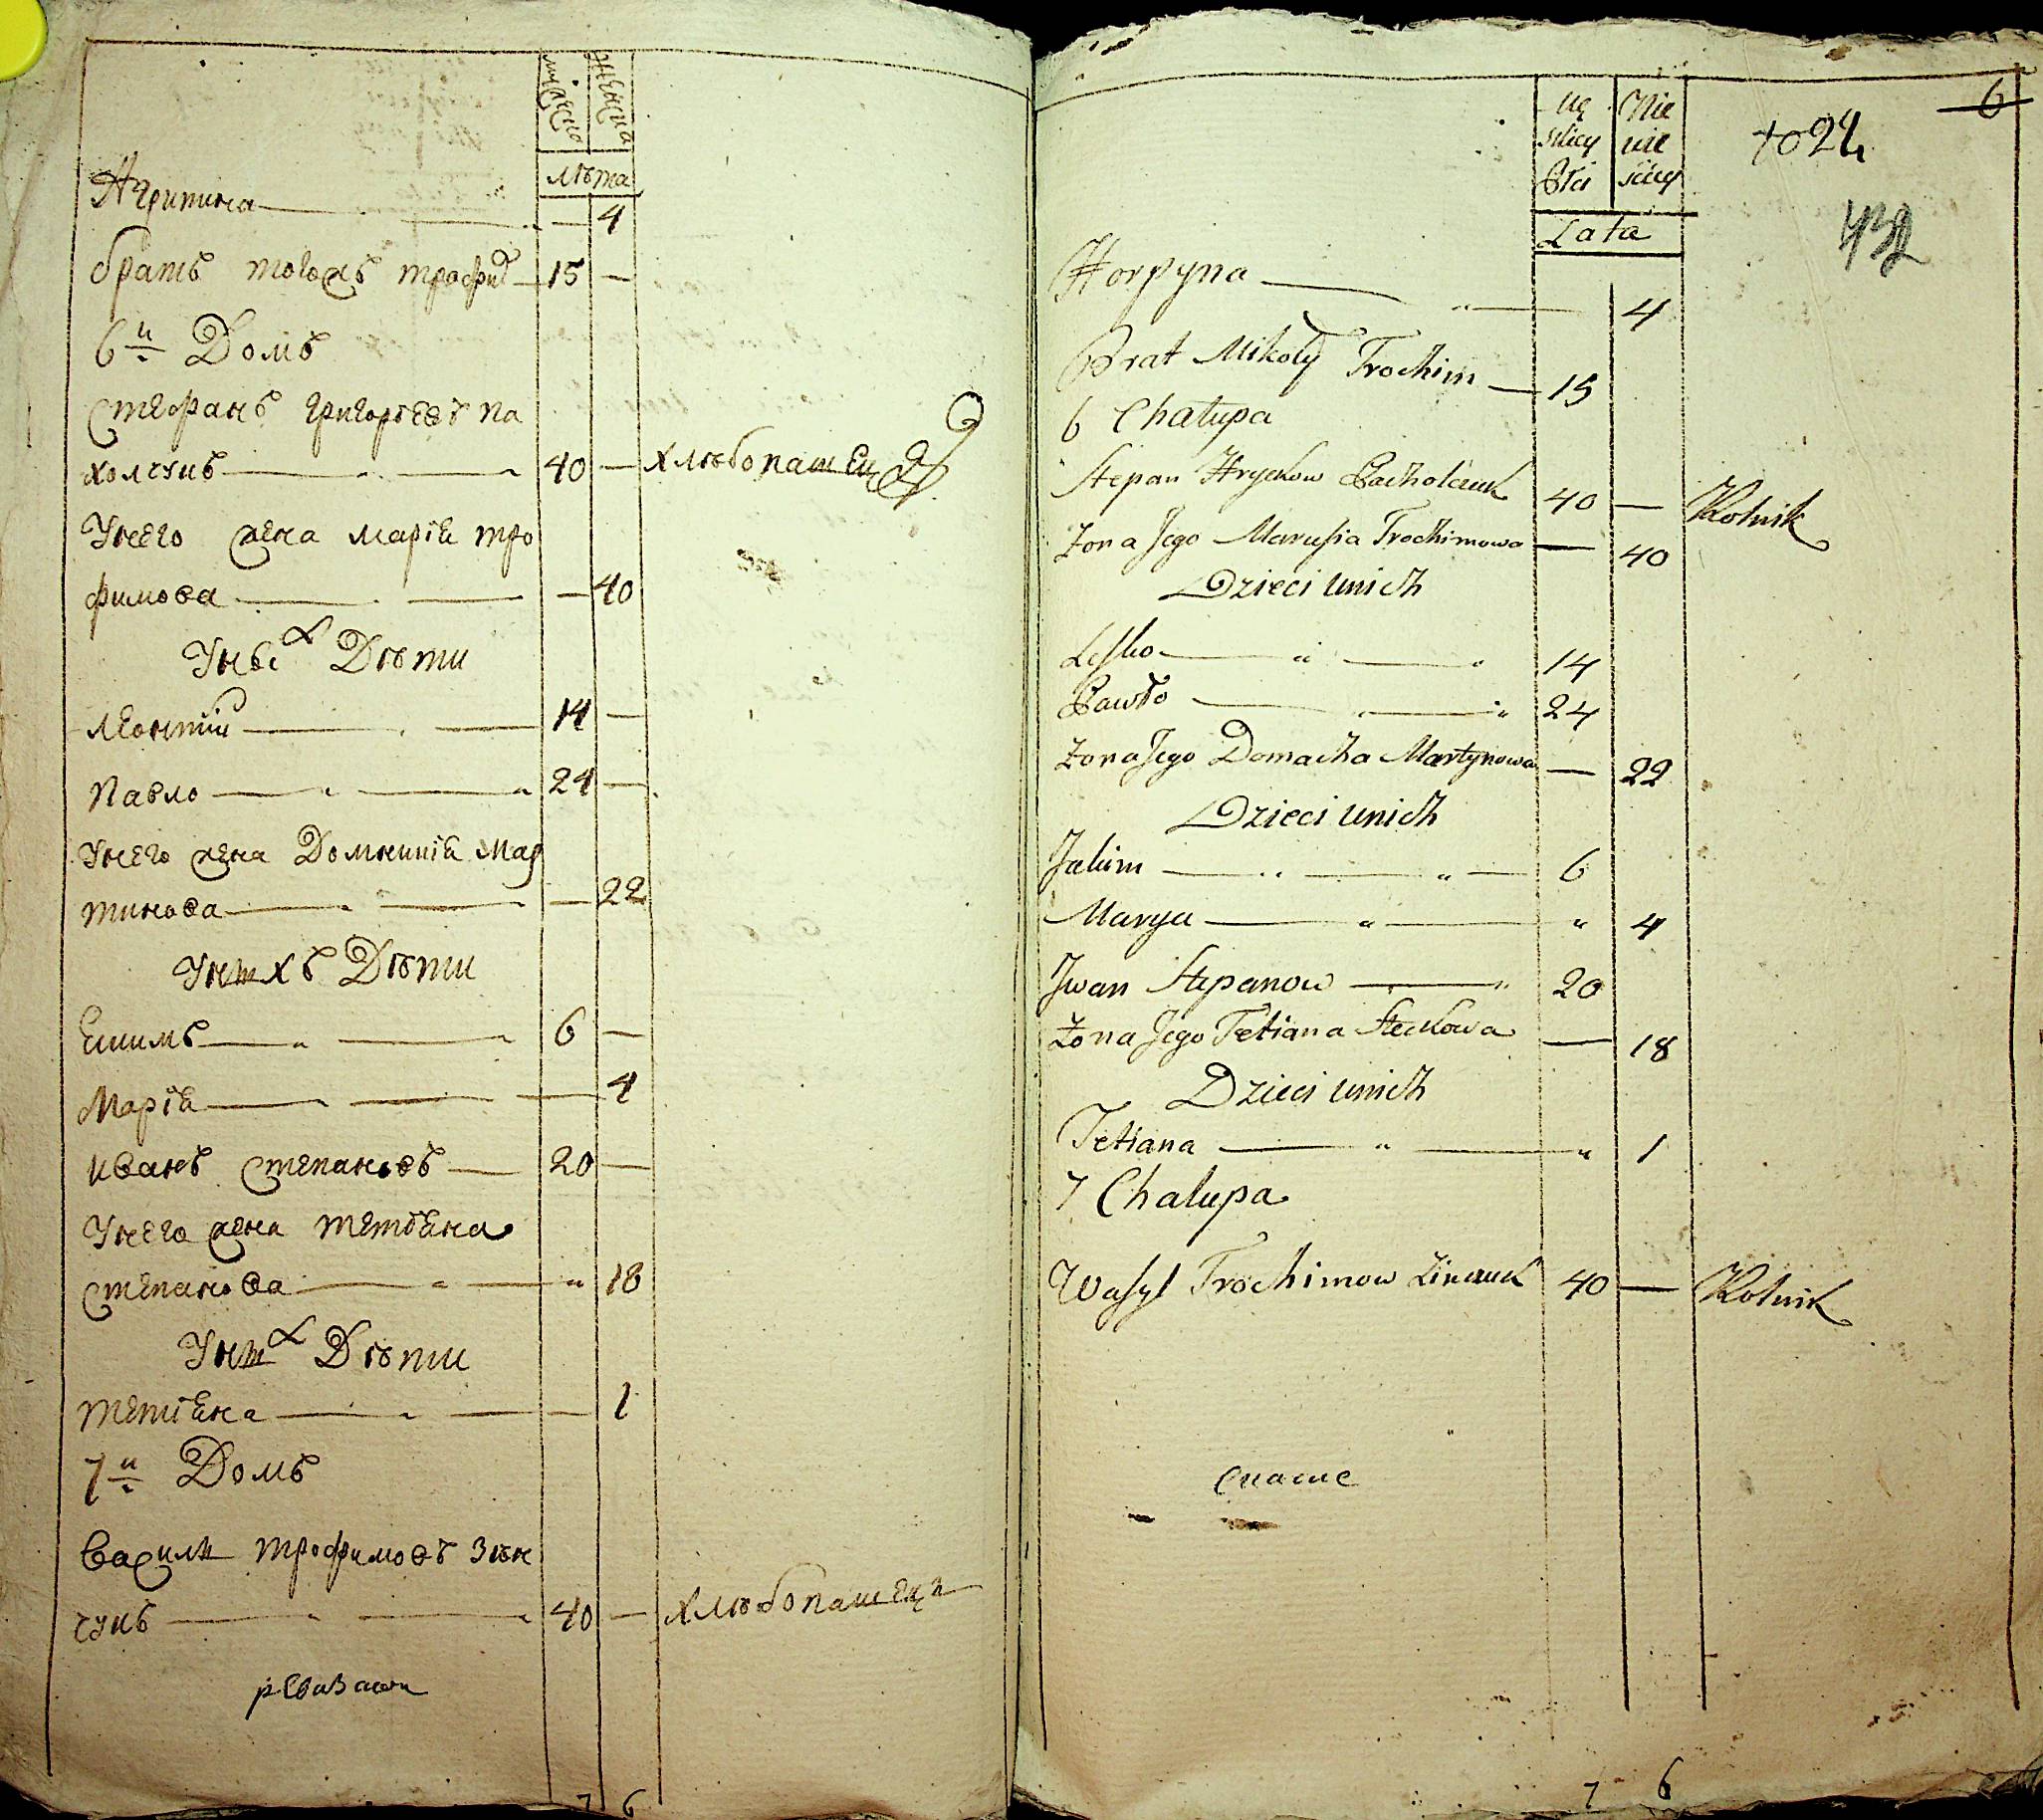 мужеска
женска
лѣта
Агрипина — — — 4
братъ николаѣ трофим — 15 —
6й Домъ
Стефанъ григорьевъ па
холчукъ — — 40 — хлѣбопашец
У него жена марія тро
фимова — — — 40
У ных Дѣти
леонтій — — 14 —
павло — — 24 —
У него жена Домникія мар
тинова — — — 22
У нихъ Дѣти
Екимъ — — 6 —
Марія — — — 4
иванъ степановъ — 20 —
У него жена тетьяна
степанова — — „ 18
У них Дѣти
тетіяна — — — 1
7й Домъ
василь трофимовъ Зѣн
чукъ — — 40 — хлѣбопашецъ
7 6
6
Mę Nie
skiey wie
Płci sciey
1024
Lata
432
Horpyna — „ — 4
Brat Mikoły Trochim — 15
6 Chałupa
Stepan Hryckow Pacholczuk 40 — Rolnik
Zona Jego Marusia Trochimowa — 40
Dzieci unich
Lesko — „ — „ 14
Pawło — „ — „ 24
Zona Jego Domacha Martynowa — 22
Dzieci unich
Jakim — „ — „ — 6
Marya — „ — „ 4
Jwan Stepanow — „ 20
Żona Jego Tetiana Steckowa — 18
Dzieci unich
Tetiana — „ — „ 1
7 Chalupa
Wasyl Trochimow Zinczuk 40 — Rolnik
7 6